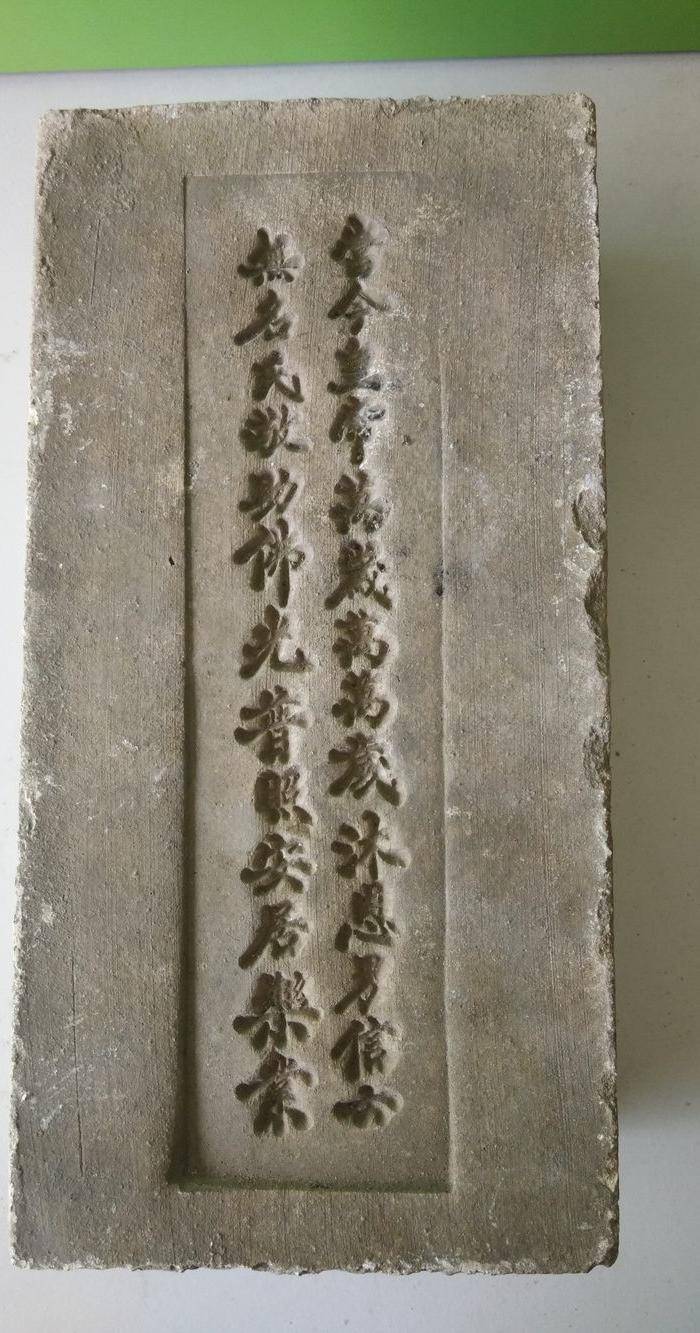 當今皇帝萬歲萬萬歲沐恩弓信士
無名氏敬助佛光普照安居樂業